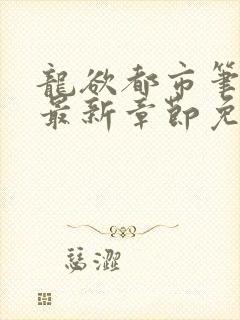 龍欲都市筆
最新章節免
瑟澀